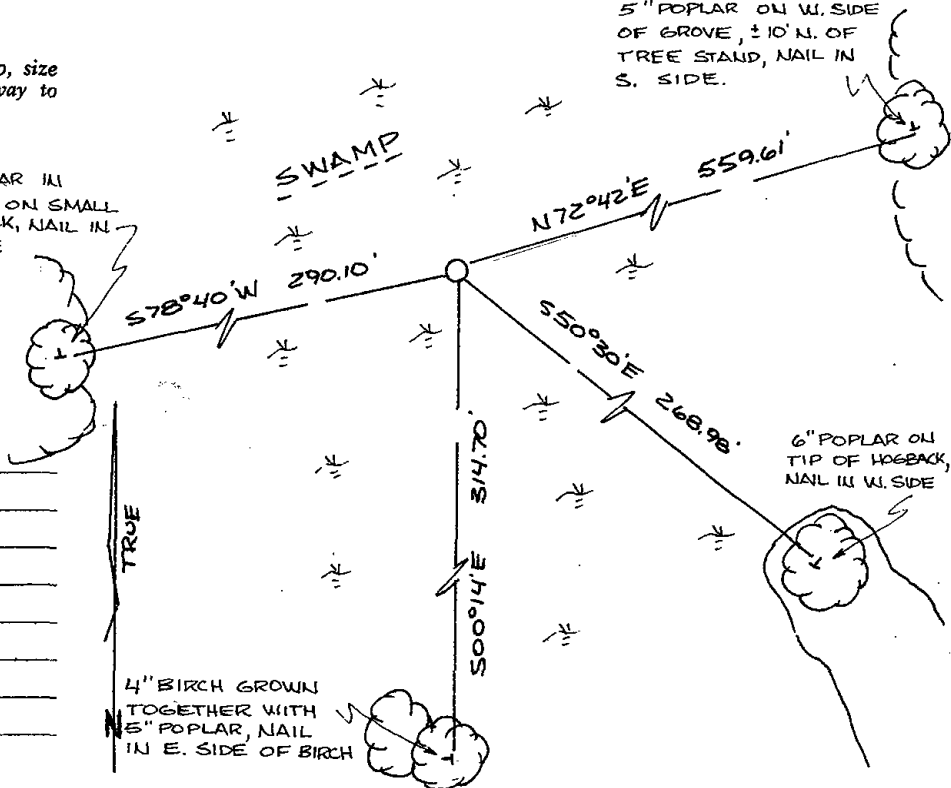 5" POPLAR ON W. SIDE
OF GROVE, ±10' N. OF
TREE STAND, NAIL IN
S. SIDE.
size
way to
SWAMP
IN
ON SMALL
NAIL IN
N72°42'E 559.61'
S78°40'W 290.10'
S50°30'E 268.98'
S00°14'E 314.70'
6" POPLAR ON
TIP OF HOGBACK,
NAIL IN W. SIDE
TRUE
N
4" BIRCH GROWN
TOGETHER WITH
5" POPLAR, NAIL
IN E. SIDE OF BIRCH